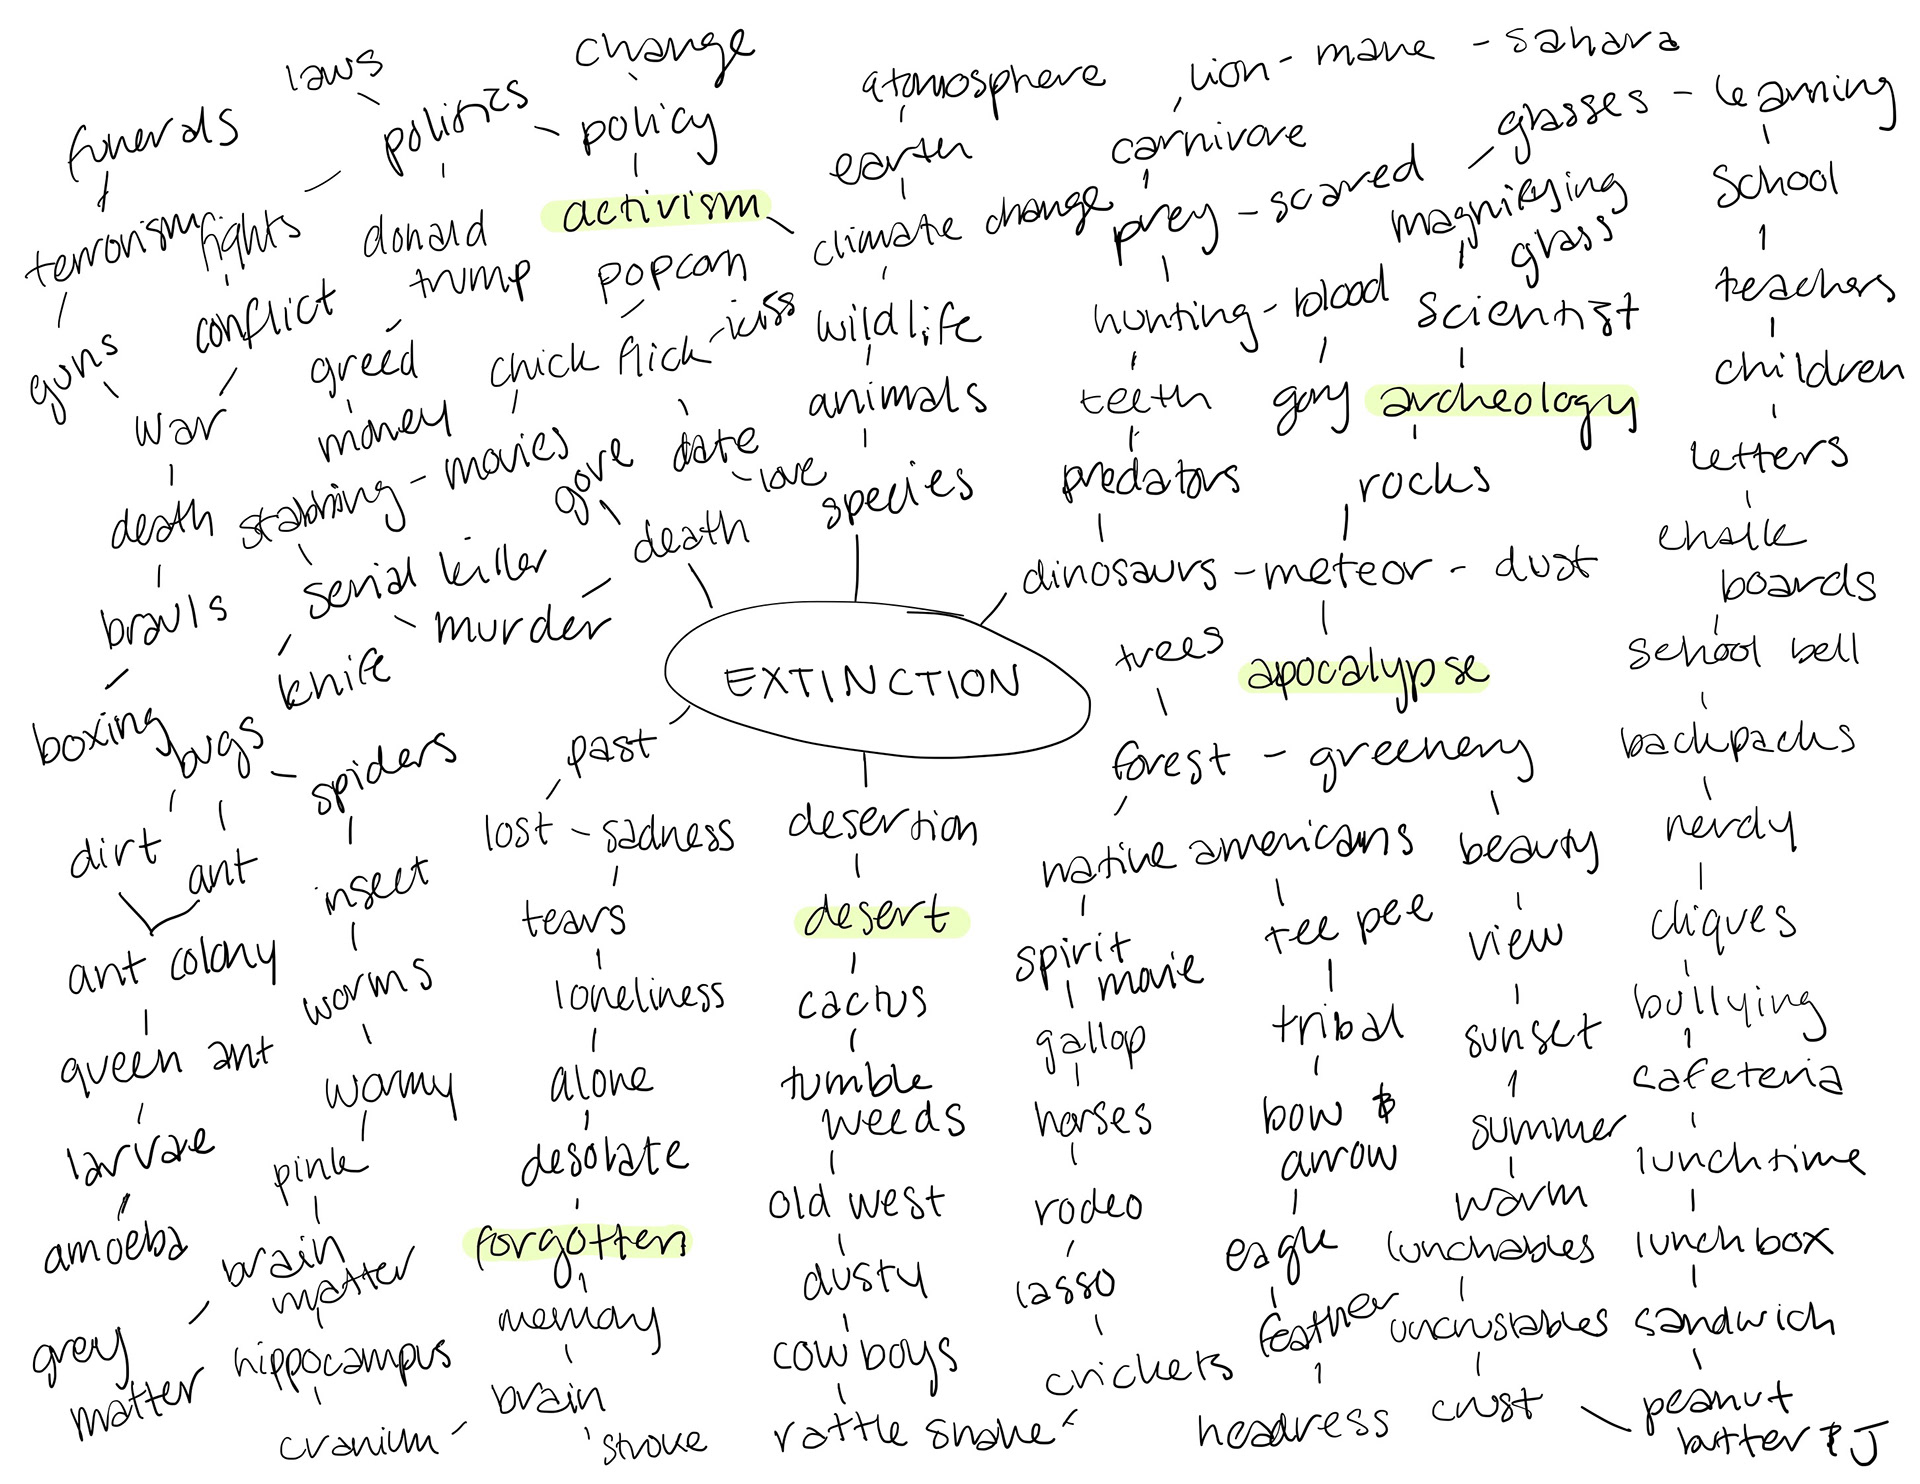 laws
change
lion - mane - sahara
funerals
politics - policy
atmosphere
glasses - learning
carnivore
earth
terrorism
rights
donald
trump
activism
climate change
prey - scared
magnifying
glass
school
guns
conflict
greed
popcorn
chick flick - kiss
wildlife
hunting - blood
scientist
teachers
war
money
stabbing - movies
gore
date
love
animals
teeth
gory
archeology
children
death
death
species
predators
rocks
letters
brawls
serial killer
murder
dinosaurs - meteor - dust
chalk
boards
boxing
knife
EXTINCTION
trees
apocalypse
school bell
bugs
spiders
past
forest - greenery
backpacks
dirt
ant
lost - sadness
desertion
native americans
beauty
nerdy
ant colony
insect
tears
desert
spirit
movie
tee pee
view
cliques
queen ant
worms
loneliness
cactus
gallop
tribal
sunset
bullying
larvae
wormy
alone
tumble
weeds
horses
bow &
arrow
summer
cafeteria
amoeba
pink
desolate
old west
rodeo
eagle
warm
lunchtime
brain
matter
forgotten
dusty
lasso
feather
lunchables
lunchbox
grey
matter
hippocampus
memory
cowboys
crickets
headress
uncrustables
sandwich
cranium - brain
stroke
rattle snake
crust
peanut
butter & J